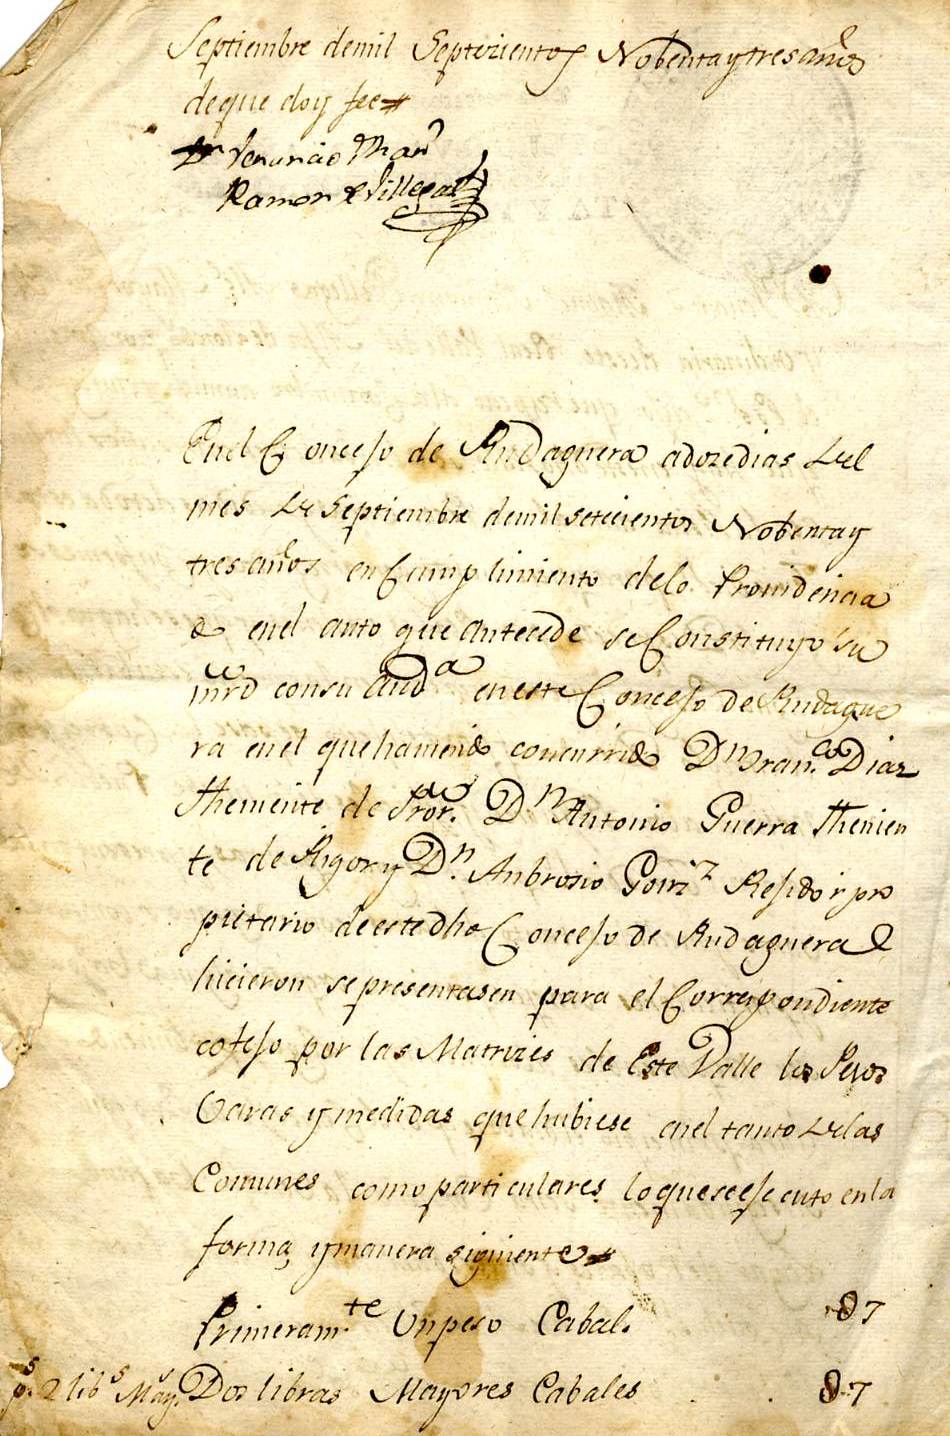 Septiembre demil Septezientos Nobentaytres años
deque doy fee
Venancio Mar
Ramon Villegas
Enel Concejo de Rudaguera adozedias del
mes de Septiembre demil setecientos Nobentay
tres años en Cumplimiento delo Providencia
enel auto que Antecede se Constituyo su
mrd consu Auda eneste Concejo de Rudague
ra enel quehaviendo concurrido Dn Franco Diaz
Theniente de Dn Antonio Guerra Thenien
te de Rigor y Dn Anbrosio Gonz Rejidor pro
pietario deestedho Concejo de Rudaguera
hicieron sepresentasen para el Correspondiente
cotejo por las Matrizes de Este Valle los Pesos
Varas y medidas quehubiese enel tanto delas
Comunes como particulares loqueseejecuto enla
forma ymanera siguiente
Primeramte Unpeso Cabal 07
ps 2 libs May. Dos libras Mayores Cabales 07